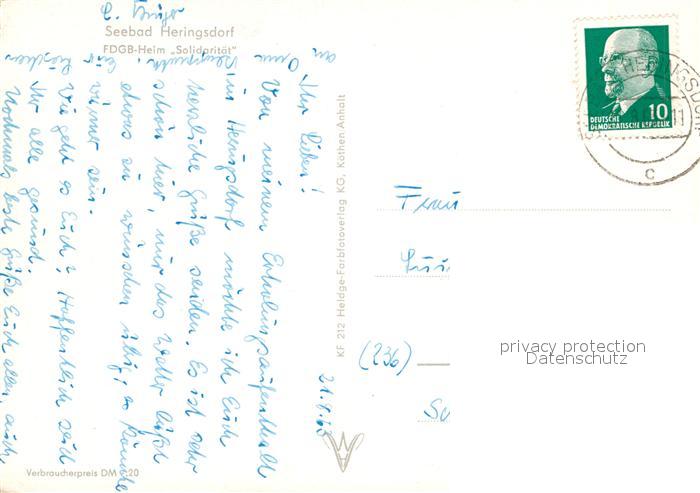 Seebad Heringsdorf
FDGB-Heim „Solidarität"
21.8.63
Ihr Lieben!
Von meinem Erholungsaufenthalt
im Heringsdorf möchte ich Euch
herzliche Grüße senden. Es ist sehr
schön hier, nur das Wetter läßt
etwas zu wünschen übrig, es könnte
wärmer sein.
Wie geht es Euch? Hoffentlich seid
Ihr alle gesund.
Nochmals beste Grüße Euch allen, auch
an Oma
KF 212 Heldge-Farbfotoverlag KG, Köthen Anhalt
Verbraucherpreis DM 0,20
10
DEUTSCHE
DEMOKRATISCHE REPUBLIK
HERINGSDORF
11
c
Frau
(236)
privacy protection
Datenschutz